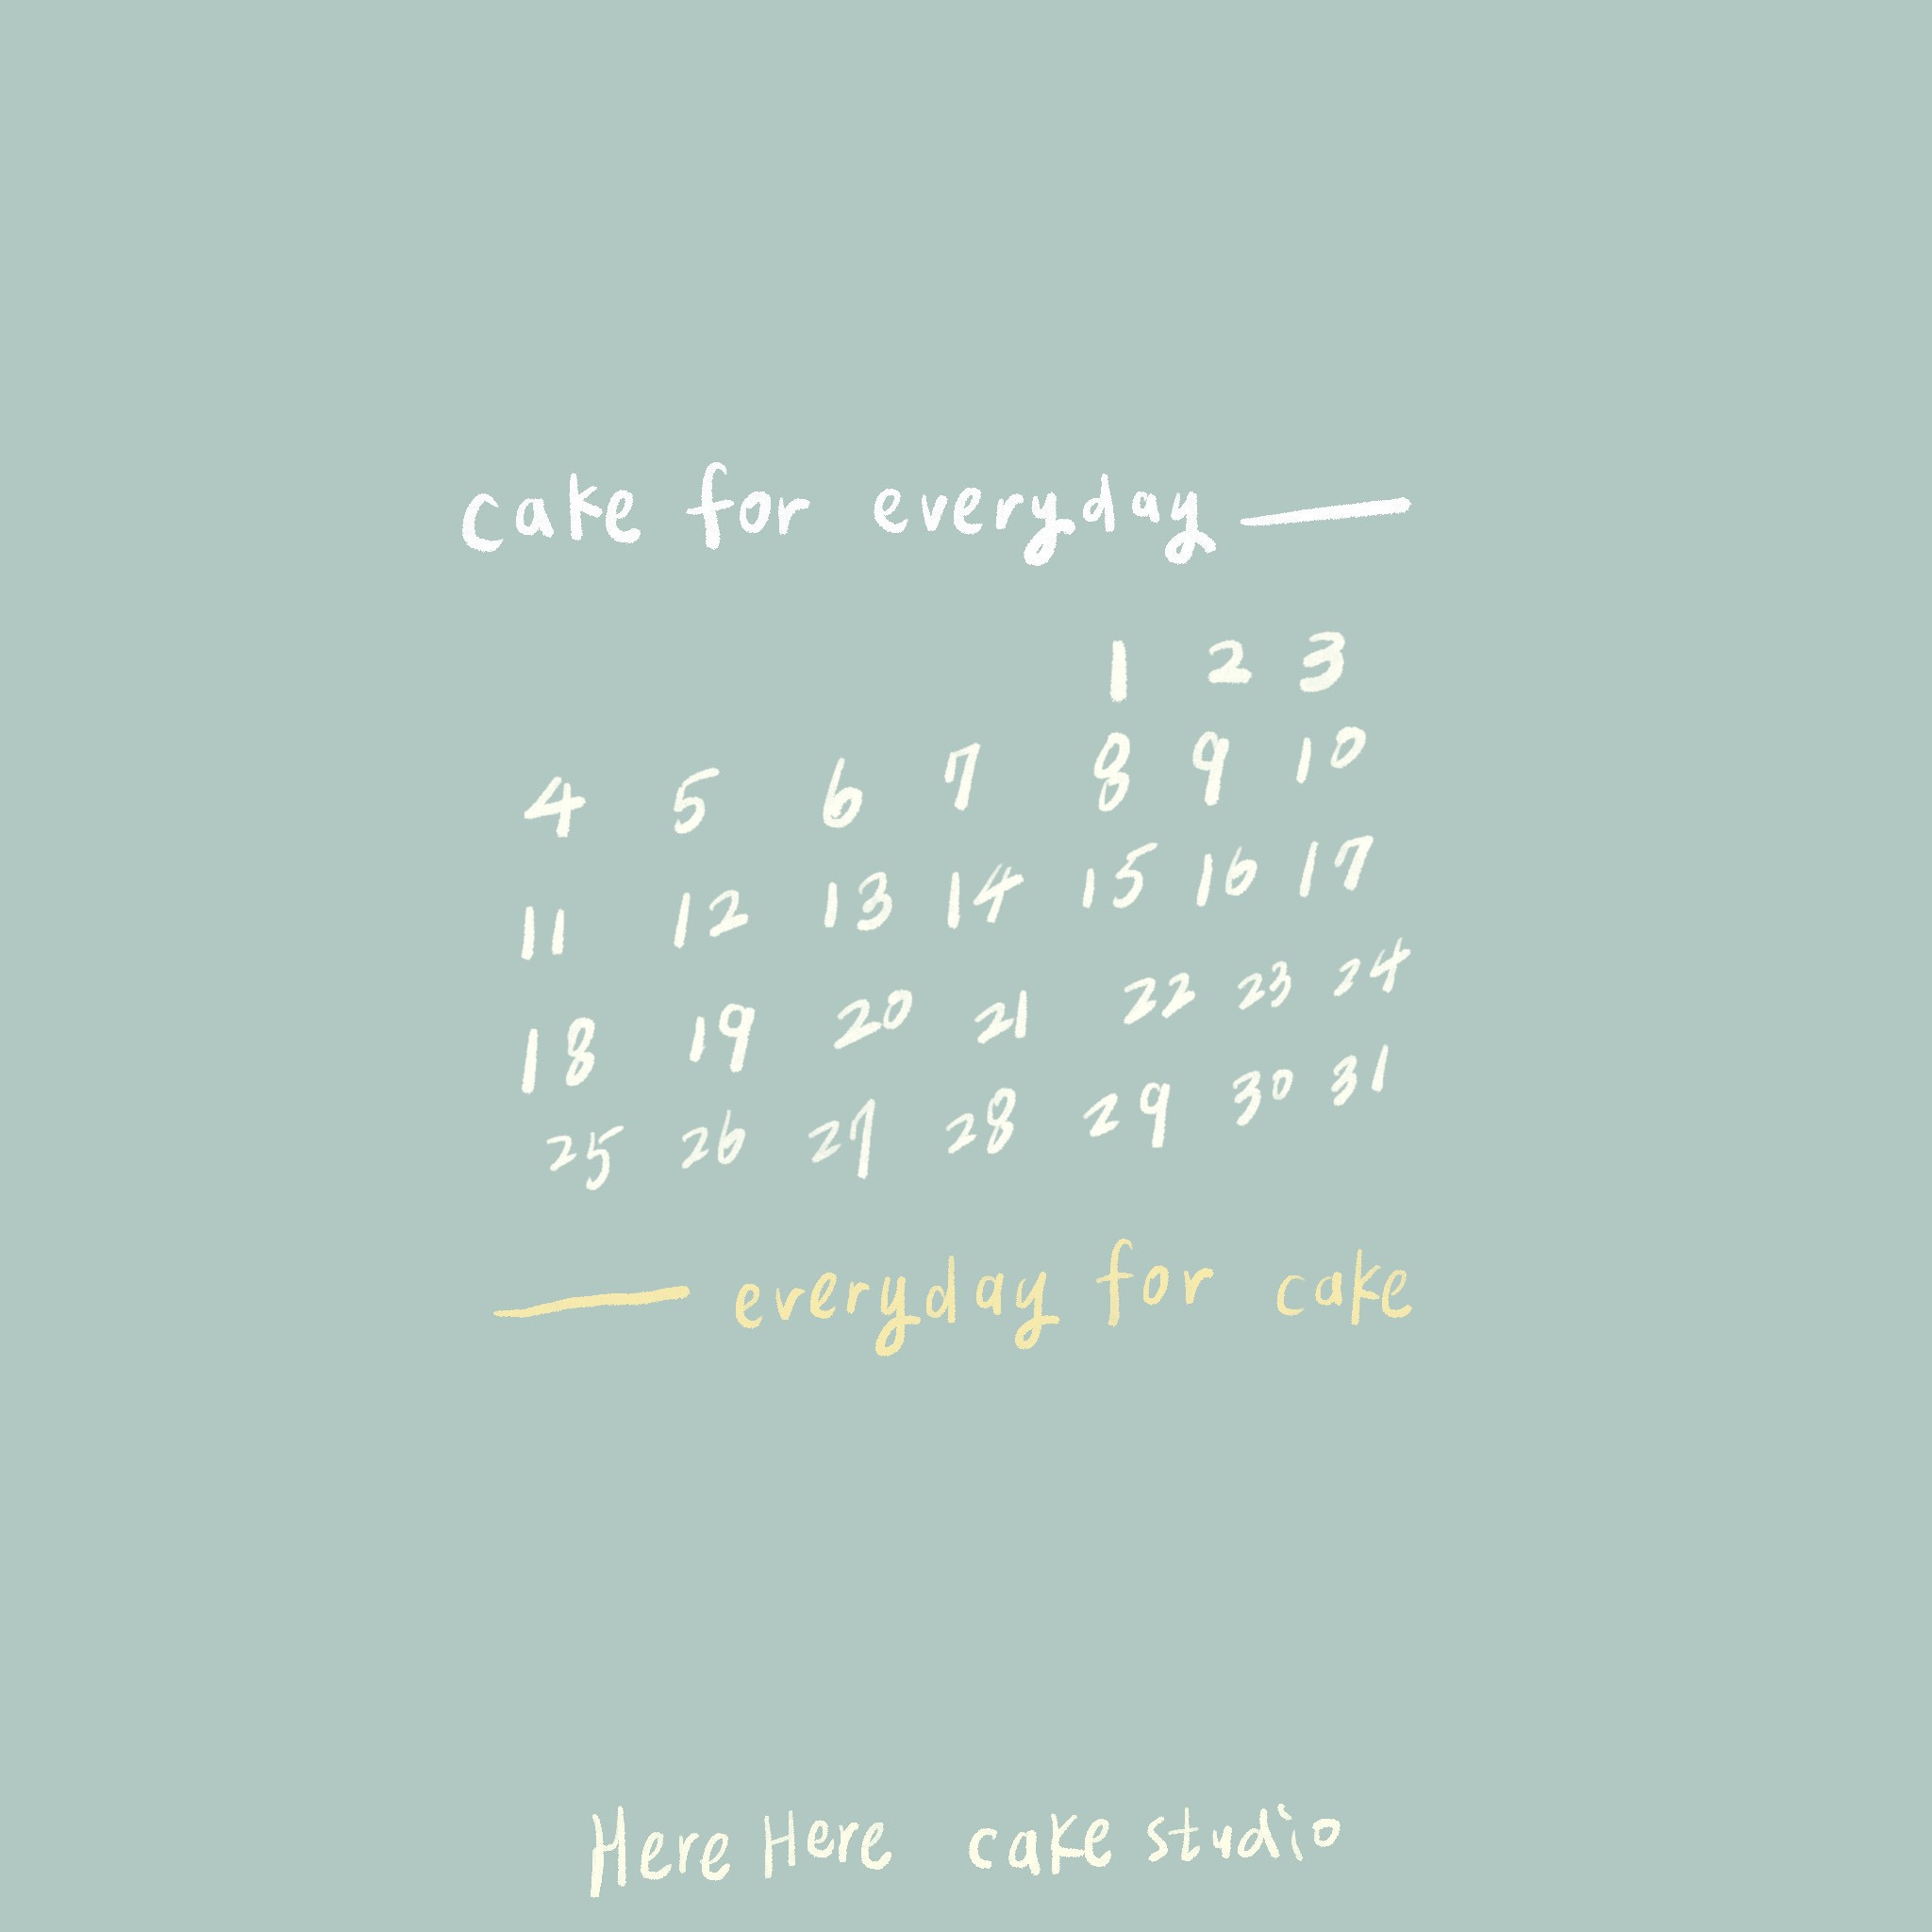 cake for everyday —
1 2 3
4 5 6 7 8 9 10
11 12 13 14 15 16 17
18 19 20 21 22 23 24
25 26 27 28 29 30 31
— everyday for cake
Here Here cake studio